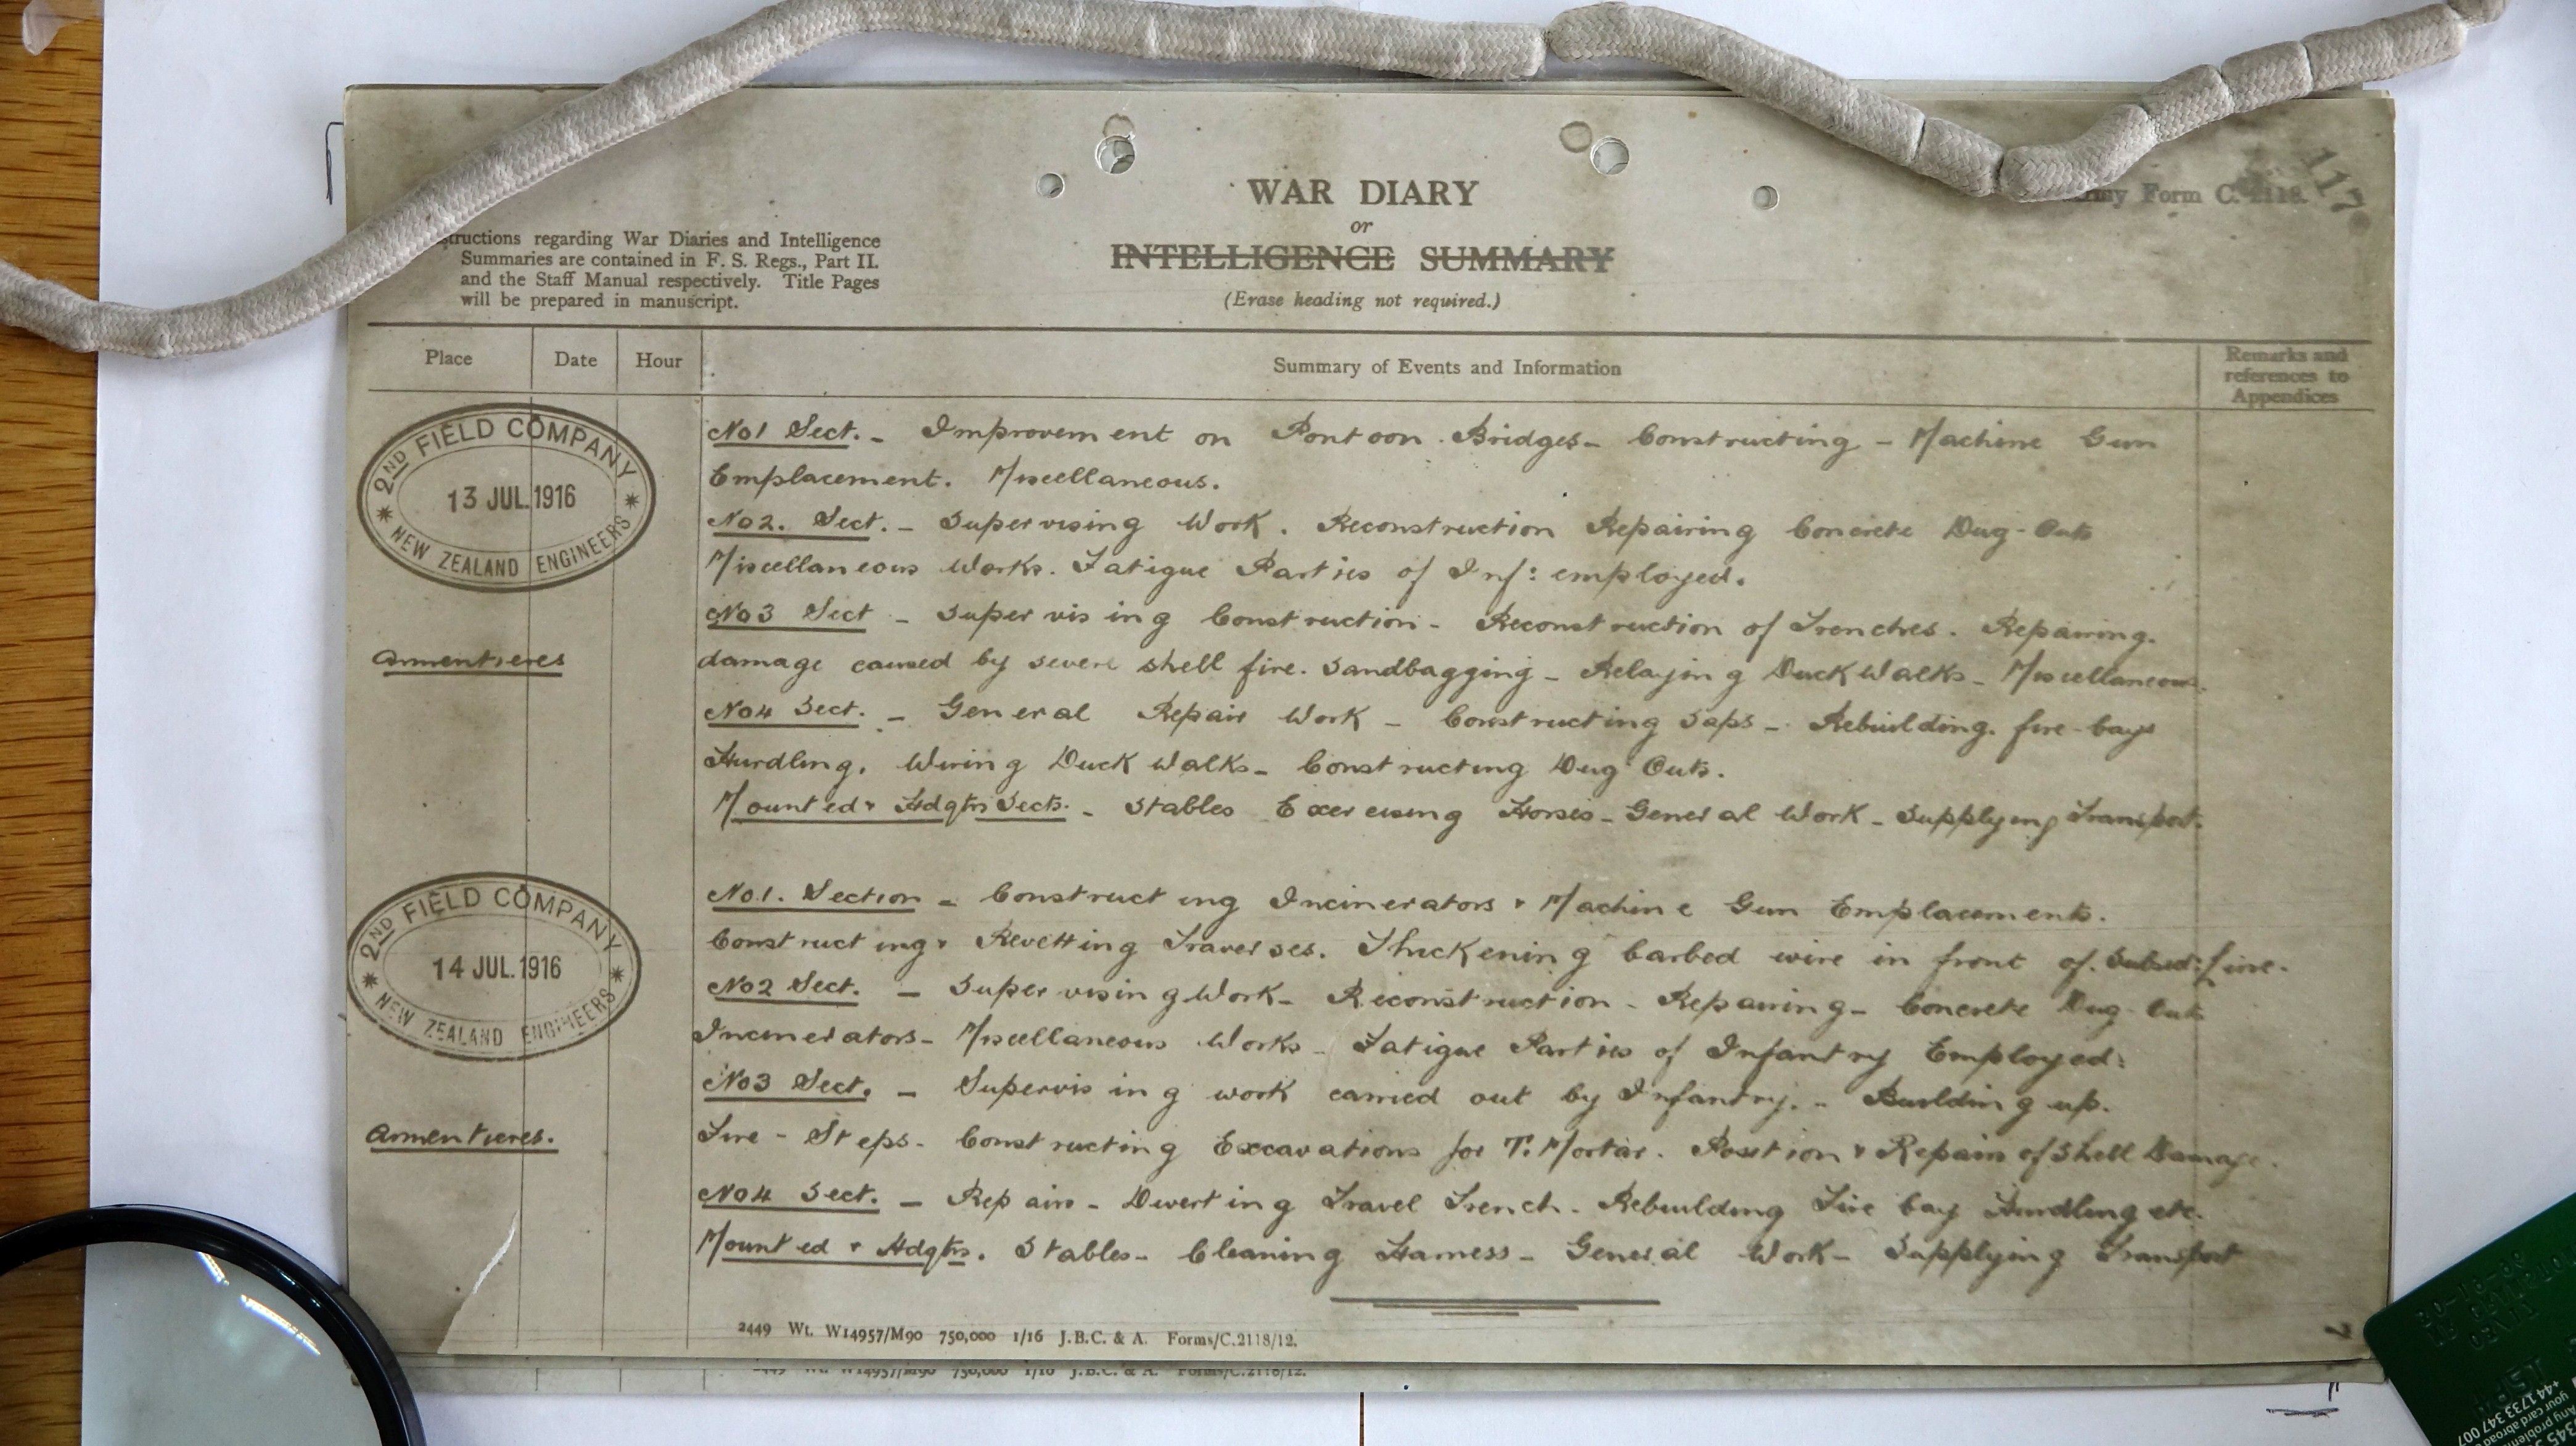 117
Army Form C. 2118.
WAR DIARY
or
INTELLIGENCE SUMMARY
(Erase heading not required.)
structions regarding War Diaries and Intelligence
Summaries are contained in F. S. Regs., Part II.
and the Staff Manual respectively. Title Pages
will be prepared in manuscript.
Place Date Hour Summary of Events and Information Remarks and references to Appendices
2ND FIELD COMPANY
13 JUL. 1916
NEW ZEALAND ENGINEERS
Armentieres
No1 Sect. - Improvement on Pontoon Bridges - Constructing - Machine Gun
Emplacement. Miscellaneous.
No2. Sect. - Supervising Work. Reconstruction Repairing Concrete Dug-Outs
Miscellaneous Works. Fatigue Parties of Inf: employed.
No3 Sect - Supervising Construction - Reconstruction of Trenches. Repairing.
damage caused by severe shell fire. Sandbagging - Relaying Duck Walks - Miscellaneous.
No4 Sect. - General Repair Work - Constructing Saps - Rebuilding. fire-bays
Hurdling. Wiring Duck Walks - Constructing Dug Outs.
Mounted & Hdqtrs Sects. - Stables Exercising Horses - General Work - Supplying Transport.
2ND FIELD COMPANY
14 JUL. 1916
NEW ZEALAND ENGINEERS
Armentieres.
No.1. Section - Constructing Incinerators & Machine Gun Emplacements.
Constructing & Revetting Traverses. Thickening barbed wire in front of. Subsid: line.
No2 Sect. - Supervising Work - Reconstruction - Repairing - Concrete Dug-Outs
Incinerators - Miscellaneous Works - Fatigue Parties of Infantry Employed:
No3 Sect. - Supervising work carried out by Infantry. - Building up.
Fire-Steps - Constructing Excavations for T. Mortar. Position & Repairs of Shell Damage.
No4 Sect. - Repairs - Diverting Travel Trench - Rebuilding Fire bay Hurdling etc.
Mounted & Hdqtrs. Stables - Cleaning Harness - General Work - Supplying Transport
2449 Wt. W14957/M90 750,000 1/16 J.B.C. & A. Forms/C.2118/12.
2449 Wt. W14957/M90 750,000 1/16 J.B.C. & A. Forms/C.2118/12.
+44 1733 347 007